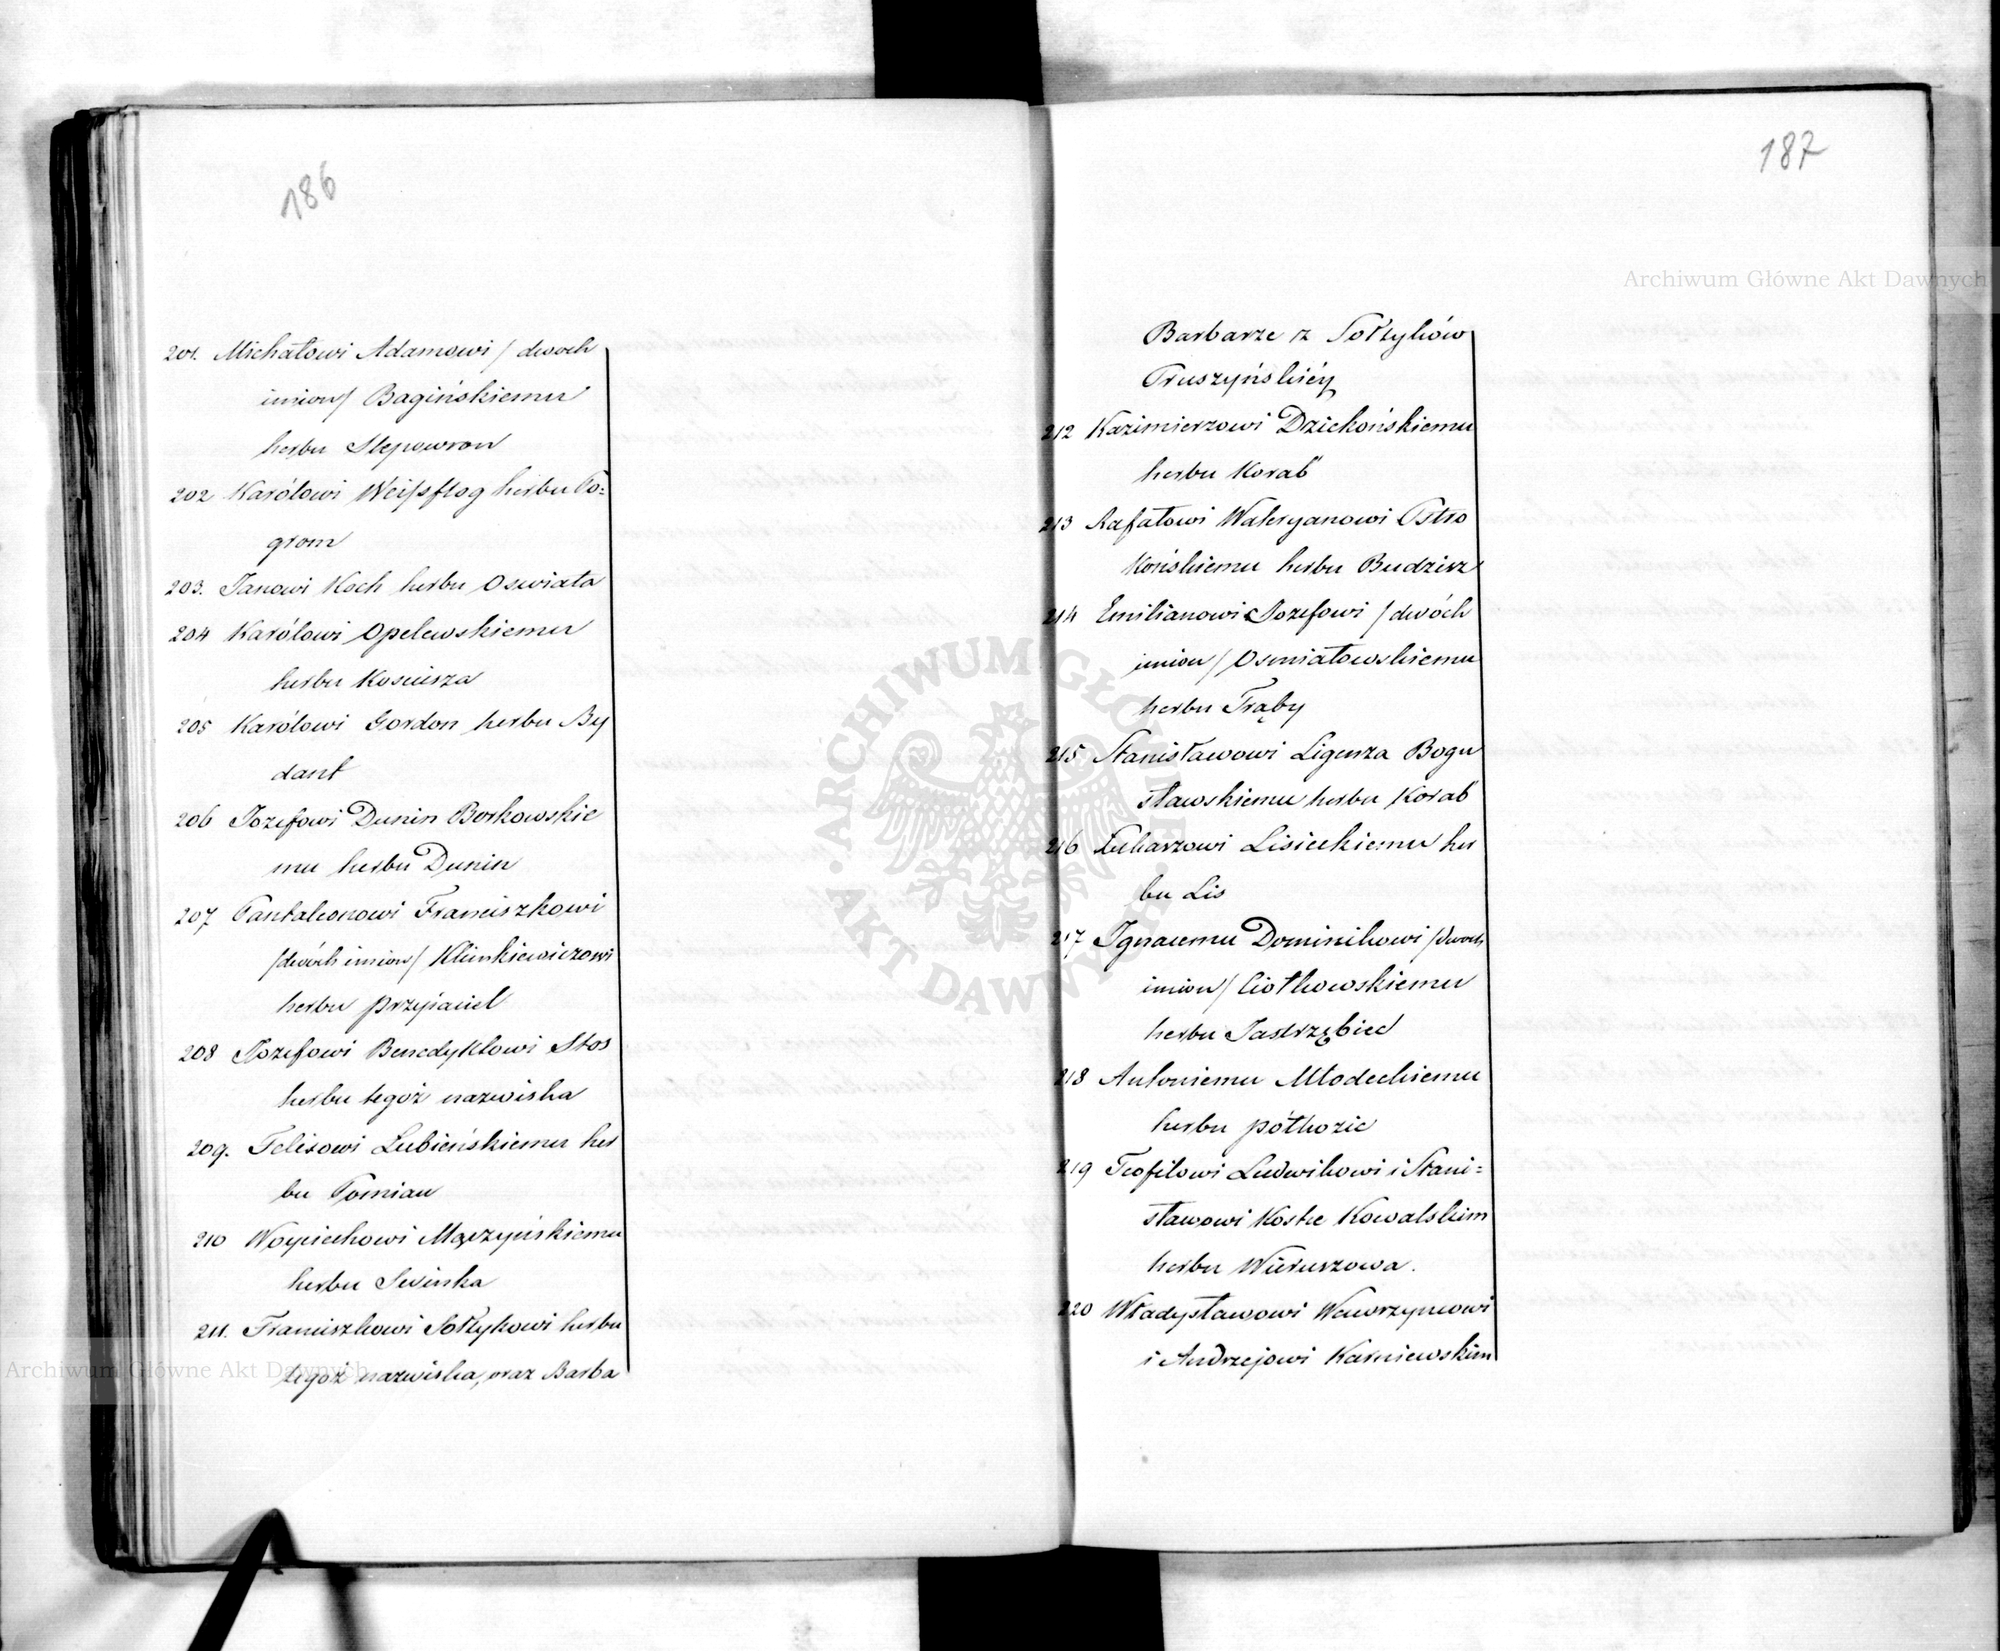 186
201. Michałowi Adamowi / dwoch
imion / Bagińskiemu
herbu Slepowron
202 Karólowi Weissflog herbu Po=
grom
203. Janowi Koch herbu Oswiata
204 Karólowi Opelewskiemu
herbu Kosciesza
205 Karólowi Gordon herbu By
dant
206 Jozefowi Dunin Borkowskie
mu herbu Dunin
207 Pantaleonowi Franciszkowi
/dwóch imion/ Klimkiewiczowi
herbu przyjaciel
208 Jozefowi Benedyktowi Stos
herbu tegoż nazwiska
209. Felixowi Łubieńskiemu her
bu Pomian
210 Woyciechowi Mączyńskiemu
herbu Swinka
211. Franciszkowi Sołtykowi herbu
tegoż nazwiska, oraz Barba
187
Barbarze z Sołtyków
Pruszyńskiéy
212 Kazimierzowi Dziekońskiemu
herbu Korab
213 Rafałowi Waleryanowi Ostro
końskiemu herbu Budzisz
214 Emilianowi Jozefowi / dwóch
imion / Osmiałowskiemu
herbu Trąby
215 Stanisławowi Ligenza Bogu
sławskiemu herbu Korab
216 Łukaszowi Lisieckiemu her
bu Lis
217 Ignacemu Dominikowi / dwoch
imion / Ciołkowskiemu
herbu Jastrzębiec
218 Antoniemu Młodeckiemu
herbu półkozic
219 Teofilowi Ludwikowi i Stani=
sławowi Kostce Kowalskim
herbu Wieruszowa.
220 Władysławowi Wawrzyncowi
i Andrzejowi Karniewskim
Archiwum Główne Akt Dawnych
Archiwum Główne Akt Dawnych
ARCHIWUM GŁÓWNE AKT DAWNYCH